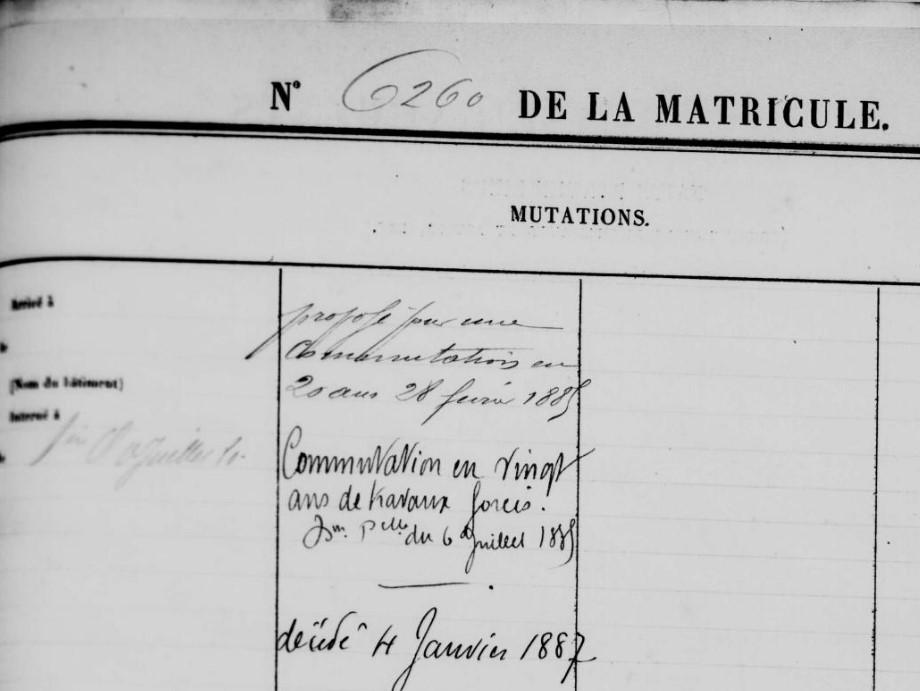 N° 6260 DE LA MATRICULE.
MUTATIONS.
Arrivé à
(Nom du bâtiment)
Interné à
proposé pour une
Commutation en
20 ans 28 février 1885
Commutation en vingt
ans de travaux forcés.
du 6 Juillet 1885
décédé 4 Janvier 1887